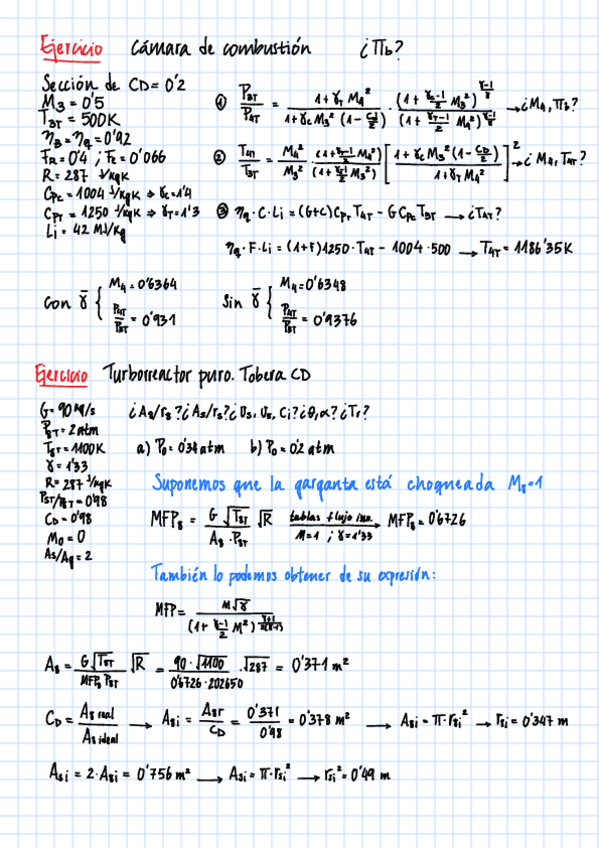 Ejercicio Cámara de combustión ¿Πb?
Sección de CD = 0'2
M3 = 0'5
T3T = 500K
ηB = ηq = 0'92
FR = 0'4 ; FE = 0'066
R = 287 J/kgK
Cpc = 1004 J/kgK ⇒ γc = 1'4
CpT = 1250 J/kgK ⇒ γT = 1'3
Li = 42 MJ/kg
① P3T/P4T = (1 + γT M4²)/(1 + γc M3² (1 - Cd/2)) · (1 + (γc-1)/2 M3²)^(γ-1/γ)/(1 + (γT-1)/2 M4²)^(γ-1/γ) → ¿M4, Πb?
② T4T/T3T = M4²/M3² · (1 + (γT-1)/2 M4²)/(1 + (γc-1)/2 M3²) [(1 + γc M3² (1 - CD/2))/(1 + γT M4²)]² ¿M4, T4T?
③ ηq · C · Li = (G+C) CpT T4T - G Cpc T3T → ¿T4T?
ηq · F · Li = (1+F) 1250 · T4T - 1004 · 500 → T4T = 1186'35K
Con γ̄ { M4 = 0'6364
P4T/P3T = 0'931
Sin γ̄ { M4 = 0'6348
P4T/P3T = 0'9376
Ejercicio Turborreactor puro. Tobera CD
G = 90 kg/s ¿A8/r8? ¿As/rs? ¿Us, Us, Ci? ¿θ, α? ¿Tr?
P8T = 2 atm
T8T = 1100K a) P0 = 0'34 atm b) P0 = 0'2 atm
γ = 1'33
R = 287 J/kgK
P5T/P8T = 0'98
CD = 0'98
M0 = 0
As/A8 = 2
Suponemos que la garganta está choqueada M8 = 1
MFP8 = G √T8T/(A8 · P8T) √R tablas flujo isen. M=1 ; γ=1'33 → MFP8 = 0'6726
También lo podemos obtener de su expresión:
MFP = M√γ/(1 + (γ-1)/2 M²)^((γ+1)/2(γ-1))
A8 = G √T8T/(MFP8 P8T) √R = 90 · √1100/(0'6726 · 202650) · √287 = 0'371 m²
CD = A8 real/A8 ideal → A8i = A8r/CD = 0'371/0'98 = 0'378 m² → A8i = π · r8i² → r8i = 0'347 m
Asi = 2 · A8i = 0'756 m² → Asi = π · rsi² → rsi² = 0'49 m